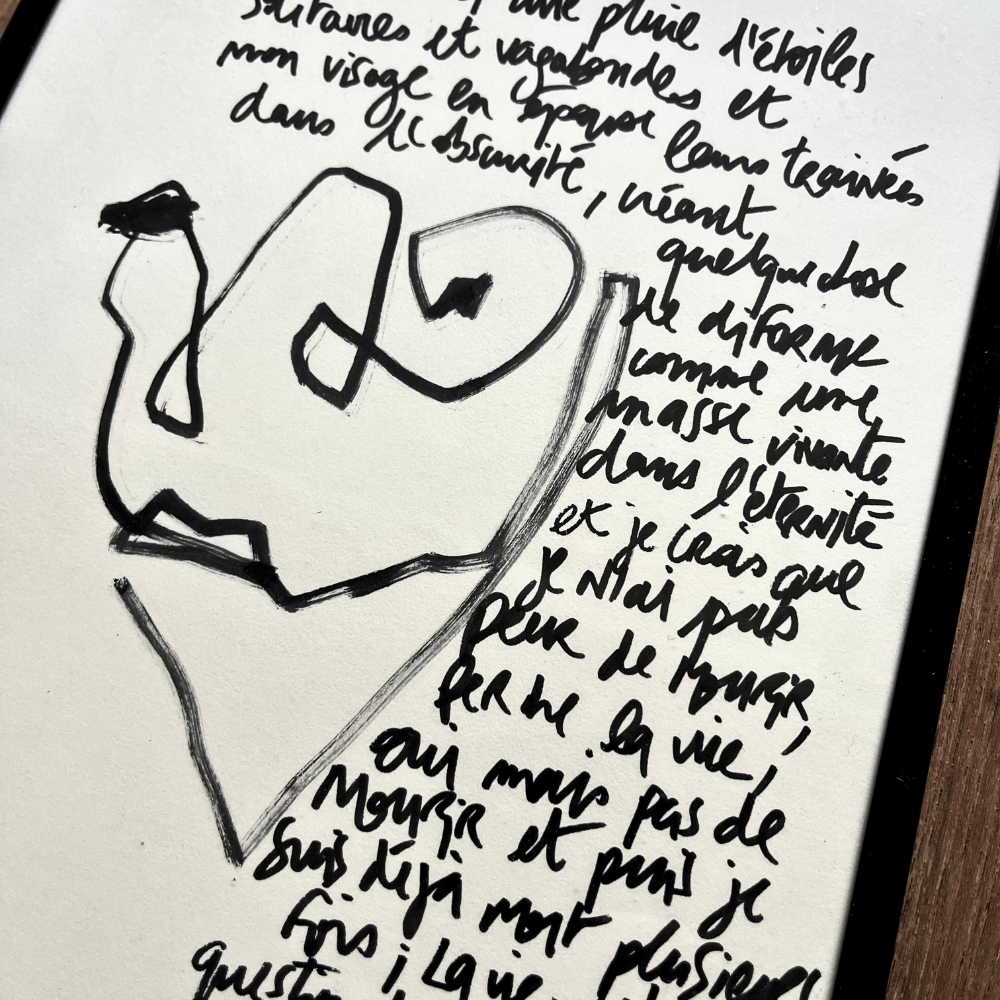 une pluie d'étoiles
solitaires et vagabondes et
mon visage en éponge leurs trainées
dans l'obscurité, créant
quelque chose
de difforme
comme une
masse vivante
dans l'éternité
et je crois que
je n'ai pas
peur de mourir,
perdre la vie,
oui mais pas de
mourir et puis je
suis déjà mort plusieurs
fois ; La vie